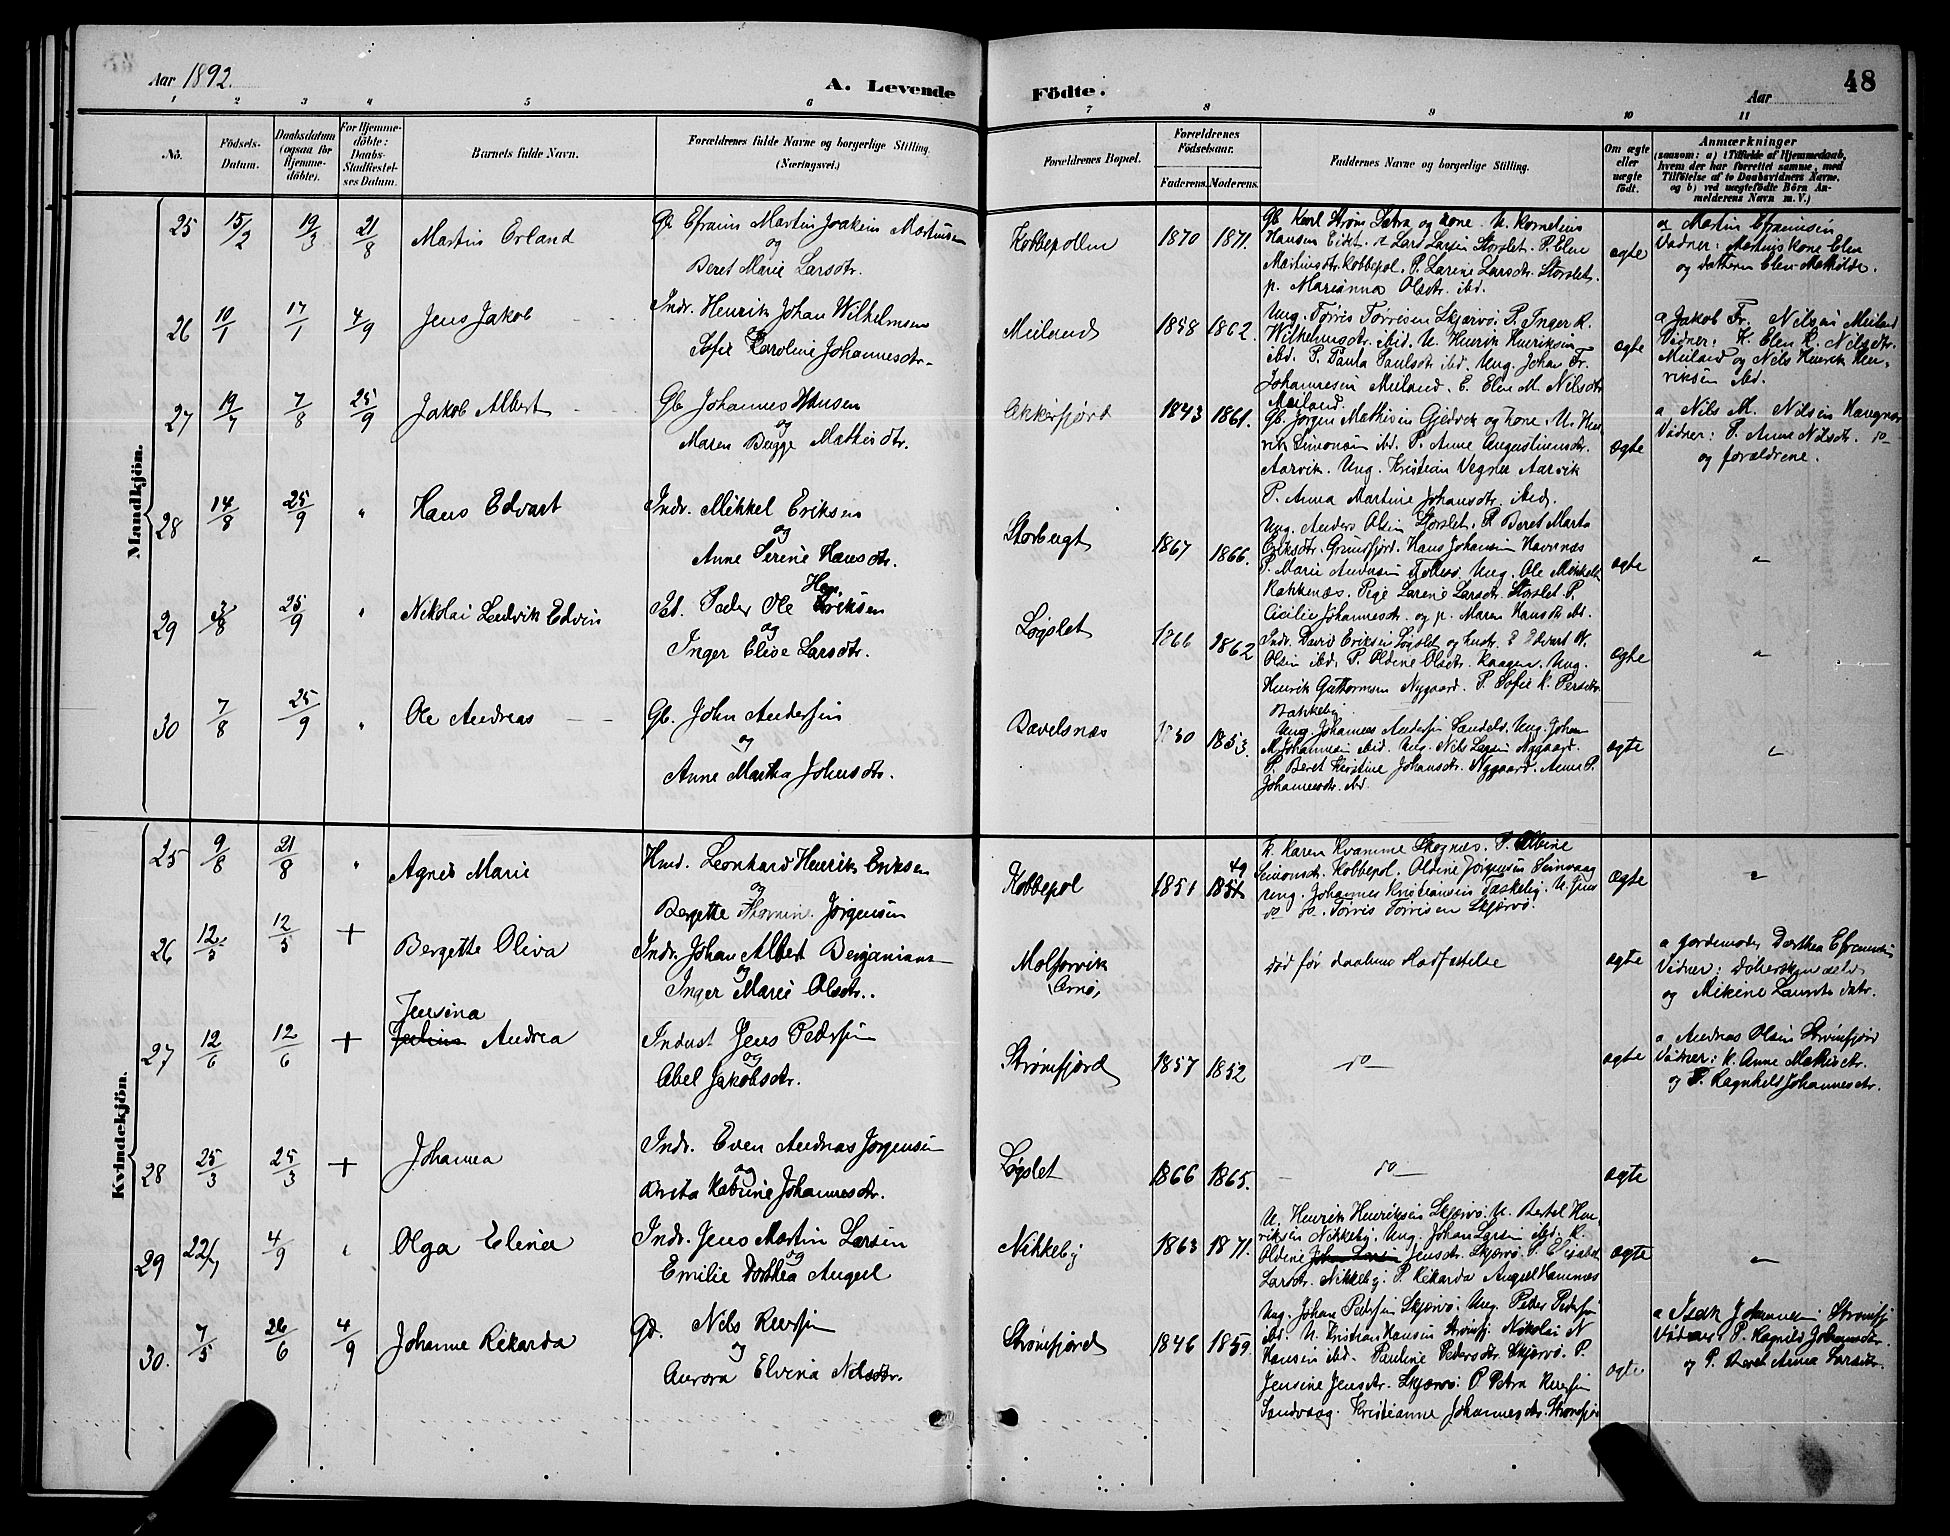 Aar 1892.
A. Levende
Födte.
Aar
48
1 2 3 4 5 6 7 8 9 10 11
No.
Födsels-
Datum.
Daabsdatum
(ogsaa for
Hjemme-
döbte).
For Hjemme-
döbte:
Daabs-
Stadfæstel-
ses Datum.
Barnets fulde Navn.
Forældrenes fulde Navne og borgerlige Stilling
(Næringsvei.)
Forældrenes Bopæl.
Forældrenes
Födselsaar.
Faderens. Moderens.
Faddernes Navne og borgerlige Stilling.
Om ægte
eller
uægte
födt.
Anmærkninger
(saasom: a) i Tilfælde af Hjemmedaab,
hvem der har forrettet samme, med
Tilföielse af to Daabsvidners Navne,
og b) ved uægtefödte Börn An-
melderens Navn m. V.)
Mandkjön.
25 15/2 19/3 21/8 Martin Erland
Gb Efraim Martin Joakim Martinsen
og
Beret Marie Larsdtr.
Kobbepollen 1870 1871.
Gb. Karl Strøm Sætra og kone. U. Kornelius
Hansen Eidet. Lars Larsen Storslet. P. Elen
Martinsdtr. Kobbepol. P. Larine Larsdtr. Storslet
p. Marianna Olsdtr. ibd.
ægte
a Martin Efraimsen
Vidner: Martins kone Elen
og datteren Elen Mathilde.
26 10/1 17/1 4/9 Jens Jakob
Indr. Henrik Johan Wilhelmsen
og
Sofie Karoline Johannesdtr.
Meiland 1858 1862.
Ung. Törris Törrisen Skjærvö. P. Inger K.
Wilhelmsdtr. ibid. U. Henrik Henriksen
ibd. P. Paula Paulsdtr ibd. Ung. Johan Fr.
Johannesen Meiland. E. Elen M. Nilsdtr
Meiland.
ægte
a Jakob Fr. Nilsen Meiland
Vidner: K. Elen K. Nilsdtr.
Meiland og Nils Henrik Hen-
riksen ibd.
27 19/7 7/8 25/9 Jakob Albert
Gb Johannes Hansen
og
Maren Bugge Mathisdtr.
Akkerfjord 1843 1861.
Gb. Jørgen Mathisen Gjedvik og kone. U. Hen
rik Simonsen ibd. P. Anne Augustinusdtr.
Aarvik. Ung. Kristian Vegsler Aarvik
P. Anna Martine Johansdtr. ibid.
ægte
a Nils M. Nilsen Haugnes
Vidner: P. Anne Nilsdtr. do
og forældrene.
28 14/8 25/9 " Hans Edvart
Indr. Mikkel Eriksen
og
Anne Serine Hansdtr.
Storbugt 1867 1866.
Ung. Anders Olsen Storslet. P. Beret Marta
Eriksdtr. Grunfjord. Hans Johansen Havnnæs
P. Marie Andersen Follesö. Ung. Ole Mikkels
Rakkenæs. Pige Larine Larsdtr. Storslet P.
Cicilie Johannesdtr. og p. Maren Hansdtr ibd.
ægte
29 3/8 25/9 " Nikolai Ludvik Edvin
Ist. Peder Ole Hen. Eriksen
og
Inger Elise Larsdtr.
Løgslet 1866 1862
Indr. David Eriksen Løgslet og hustr. E. Edvart K.
Olsen ibd. P. Oldine Olsdtr. Kaagen. Ung.
Henrik Guttormsen Nygaard. P. Sofie K. Persdtr.
Bakkeby
ægte
30 7/8 25/9 " Ole Andreas
Gb. John Andersen
og
Anne Martha Johnsdtr.
Bavelsnæs 1850 1853.
Ung. Johannes Andersen Sandeld. Ung. Johan
M. Johannesen ibid. Ung. Nils Larsen Nygaard.
P. Beret Kristine Johansdtr. Nygaard. Anne P.
Johannesdtr. ibd.
ægte
Kvindekjön.
25 9/8 21/8 " Agnes Marie
Hmd. Leonhard Henrik Eriksen
og
Bergette Thomine Jørgensen
Kobbepol 1851 49 1851
K. Karen Kvamme Skognæs. P. Albine
Simonsdtr. Kobbepol. Oldine Jørgensen Seinvaag
Ung. Johannes Kristiansen Taskeby. U. Jens
do do. Törris Törrisen Skjærvö.
ægte
26 12/5 12/5 + Bergette Oliva
Indr. Johan Albert Benjamins
og
Inger Marie Olsdtr.
Molforvik
(Arnö)
död før daabens Stadfæstelse
ægte
a jordemoder Dorthea Efraimsen
og Mikine Laurits datr.
27 12/6 12/6 + Jensina
Andrea
Indust Jens Pedersen
og
Abel Jakobsdtr.
Strömfjord 1857 1852
do
ægte
a Andreas Olsen Strömfjord
Vidner: K. Anne Mathisdtr.
og P. Ragnhild Johannesdtr.
28 25/3 25/3 + Johanna
Indr. Even Andreas Jørgensen
og
Brita Katrine Johannesdtr.
Løgslet 1866 1865.
do
ægte
29 22/7 4/9 " Olga Elina
Indr. Jens Martin Larsen
og
Emilie Dorthea Angell
Nikkeby 1863 1871.
U. Henrik Henriksen Skjærvö. U. Bertel Hen-
riksen Nikkeby. Ung. Johan Larsen ibd. K.
Oldine Johan Larsen Jensdtr. Skjærvö. P. Elisabet
Larsdtr. Nikkeby. P. Rikarda Angell Hamnæs
ægte
30. 7/5 26/6 4/9 Johanne Rikarda
Gd. Nils Iversen
og
Aurora Elvina Nilsdtr.
Strömfjord 1846 1859.
Ung. Johan Pedersen Skjærvö. Ung. Peder Pedersen
ibd. U. Kristian Hansen Strömfj. Nikolai N
Hansen ibd. Pauline Pedersdtr. Skjærvö. P.
Jensine Jensdtr. Skjærvö. P. Petra Iversen
Sandvaag. Kristianne Johannesdtr. Strömfjord
ægte
a Isak Johannesen Strömfj
Vidner: P. Ragnild Johansdtr
og P. Beret Anna Larsdtr.